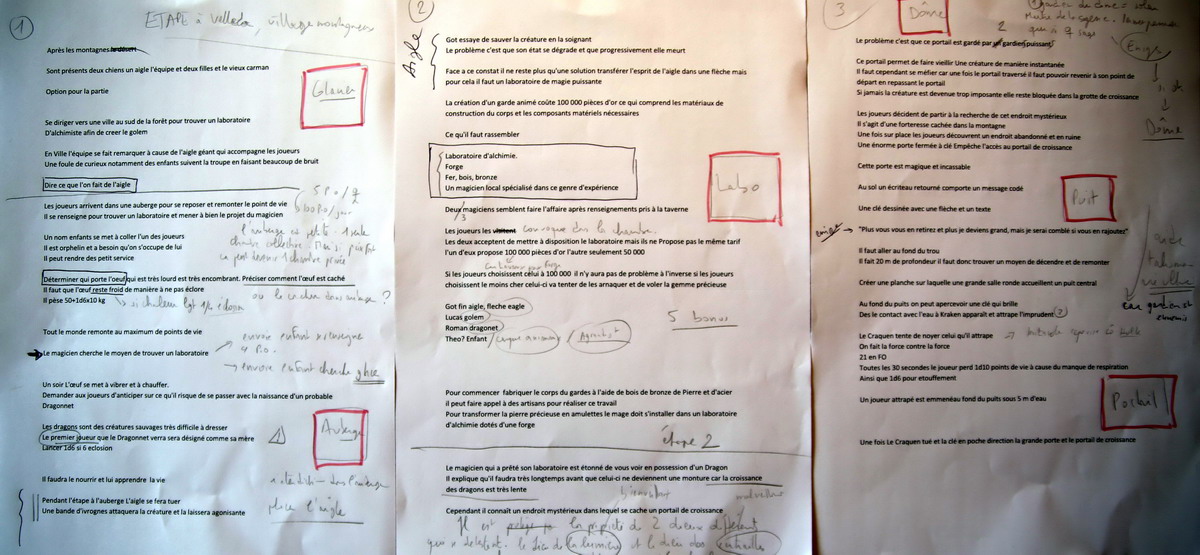 1
ETAPE à Velleda, village montagneux
Après les montagnes
Sont présents deux chiens un aigle l'équipe et deux filles et le vieux carman
Option pour la partie
Se diriger vers une ville au sud de la forêt pour trouver un laboratoire
D'alchimiste afin de creer le golem
En Ville l'équipe se fait remarquer à cause de l'aigle géant qui accompagne les joueurs
Une foule de curieux notamment des enfants suivent la troupe en faisant beaucoup de bruit
Dire ce que l'on fait de l'aigle
Les joueurs arrivent dans une auberge pour se reposer et remonter le point de vie
Il se renseigne pour trouver un laboratoire et mener à bien le projet du magicien
l'auberge est petite - 1 seule
chambre collective.
Un nom enfants se met à coller l'un des joueurs
Il est orphelin et a besoin qu'on s'occupe de lui
Il peut rendre des petit service
1 chambre privée
Déterminer qui porte l'oeuf qui est très lourd est très encombrant. Préciser comment l'œuf est caché
Il faut que l'œuf reste froid de manière à ne pas éclore
Il pèse 50+1d6x10 kg
Tout le monde remonte au maximum de points de vie
Le magicien cherche le moyen de trouver un laboratoire
envoie enfant se renseigne
4 P.O.
envoie enfant cherche glace
Un soir L'œuf se met à vibrer et à chauffer.
Demander aux joueurs d'anticiper sur ce qu'il risque de se passer avec la naissance d'un probable
Dragonnet
Les dragons sont des créatures sauvages très difficile à dresser
Le premier joueur que le Dragonnet verra sera désigné comme sa mère
Lancer 1d6 si 6 eclosion
Auberge
Il faudra le nourrir et lui apprendre la vie
Pendant l'étape à l'auberge L'aigle se fera tuer
Une bande d'ivrognes attaquera la créature et la laissera agonisante
place l'aigle
2
Aigle
Got essaye de sauver la créature en la soignant
Le problème c'est que son état se dégrade et que progressivement elle meurt
Face a ce constat il ne reste plus qu'une solution transférer l'esprit de l'aigle dans une flèche mais
pour cela il faut un laboratoire de magie puissante
La création d'un garde animé coûte 100 000 pièces d'or ce qui comprend les matériaux de
construction du corps et les composants matériels nécessaires
Ce qu'il faut rassembler
Laboratoire d'alchimie.
Forge
Fer, bois, bronze
Un magicien local spécialisé dans ce genre d'expérience
Labo
Deux magiciens semblent faire l'affaire après renseignements pris à la taverne
/3
Les joueurs les convoque dans la chambre.
Les deux acceptent de mettre à disposition le laboratoire mais ils ne Propose pas le même tarif
l'un d'eux propose 100 000 pièces d'or l'autre seulement 50 000
Si les joueurs choisissent celui à 100 000 il n'y aura pas de problème à l'inverse si les joueurs
choisissent le moins cher celui-ci va tenter de les arnaquer et de voler la gemme précieuse
Got fin aigle, fleche eagle
Lucas golem
Roman dragonet
Theo? Enfant
5 bonus
Pour commencer fabriquer le corps du gardes à l'aide de bois de bronze de Pierre et d'acier
il peut faire appel à des artisans pour réaliser ce travail
Pour transformer la pierre précieuse en amulettes le mage doit s'installer dans un laboratoire
d'alchimie dotés d'une forge
étape 2
Le magicien qui a prêté son laboratoire est étonné de vous voir en possession d'un Dragon
Il explique qu'il faudra très longtemps avant que celui-ci ne deviennent une monture car la croissance
des dragons est très lente
Cependant il connaît un endroit mystérieux dans lequel se cache un portail de croissance
Il est la propriété de 2 dieux différent
qui se detestent. le dieu de la lumière et le dieu des
3
Dôme
Le problème c'est que ce portail est gardé par 2 gardiens puissant
Enigme
Ce portail permet de faire vieillir Une créature de manière instantanée
Il faut cependant se méfier car une fois le portail traversé il faut pouvoir revenir à son point de
départ en repassant le portail
Si jamais la créature est devenue trop imposante elle reste bloquée dans la grotte de croissance
Dôme
Les joueurs décident de partir à la recherche de cet endroit mystérieux
Il s'agit d'une forteresse cachée dans la montagne
Une fois sur place les joueurs découvrent un endroit abandonné et en ruine
Une énorme porte fermée à clé Empêche l'accès au portail de croissance
Cette porte est magique et incassable
Au sol un écriteau retourné comporte un message codé
Puit
Une clé dessinée avec une flèche et un texte
"Plus vous vous en retirez et plus je deviens grand, mais je serai comblé si vous en rajoutez"
Il faut aller au fond du trou
Il fait 20 m de profondeur il faut donc trouver un moyen de décendre et de remonter
Créer une planche sur laquelle une grande salle ronde accueillent un puit central
Au fond du puits on peut apercevoir une clé qui brille
Des le contact avec l'eau à Kraken apparaît et attrape l'imprudent
car gardien est
ennemis
Le Craquen tente de noyer celui qu'il attrape
On fait la force contre la force
21 en FO
Toutes les 30 secondes le joueur perd 1d10 points de vie à cause du manque de respiration
Ainsi que 1d6 pour etouffement
Un joueur attrapé est emmenéau fond du puits sous 5 m d'eau
Portail
Une fois Le Craquen tué et la clé en poche direction la grande porte et le portail de croissance